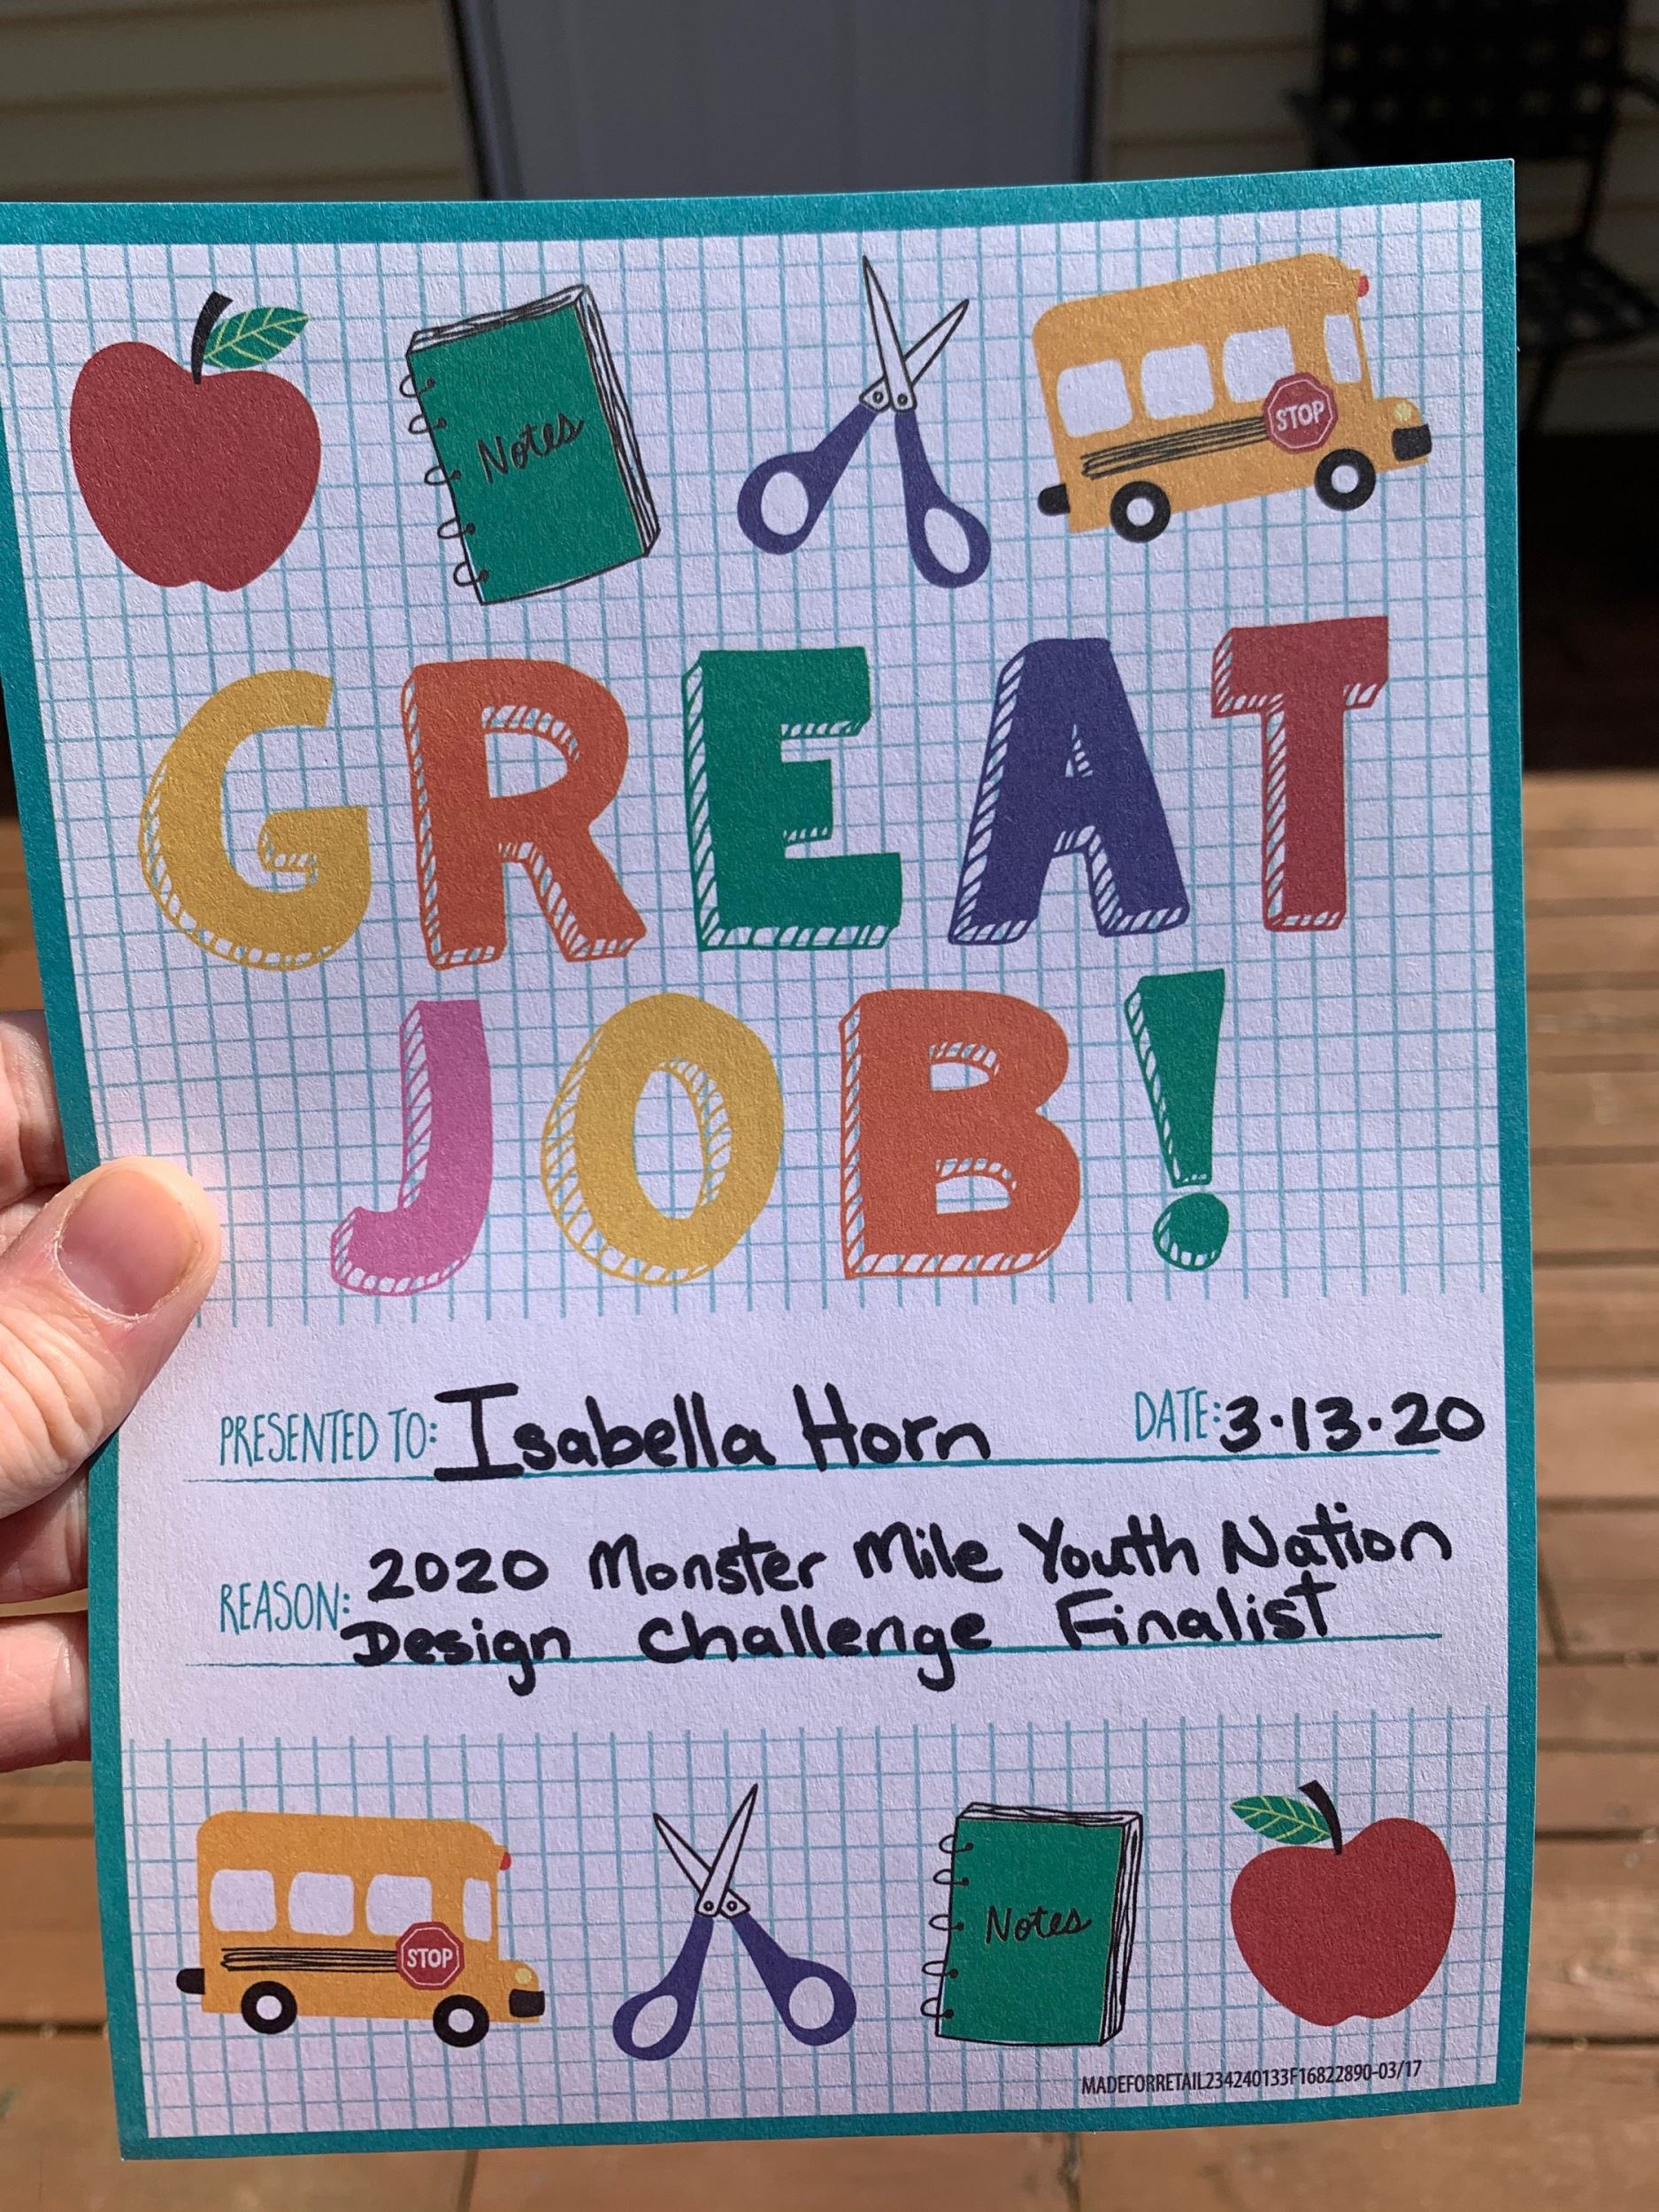 Notes
STOP
GREAT
JOB!
PRESENTED TO: Isabella Horn DATE: 3.13.20
2020 Monster Mile Youth Nation
REASON: Design Challenge Finalist
STOP
Notes
MADEFORRETAIL234240133F16822890-03/17